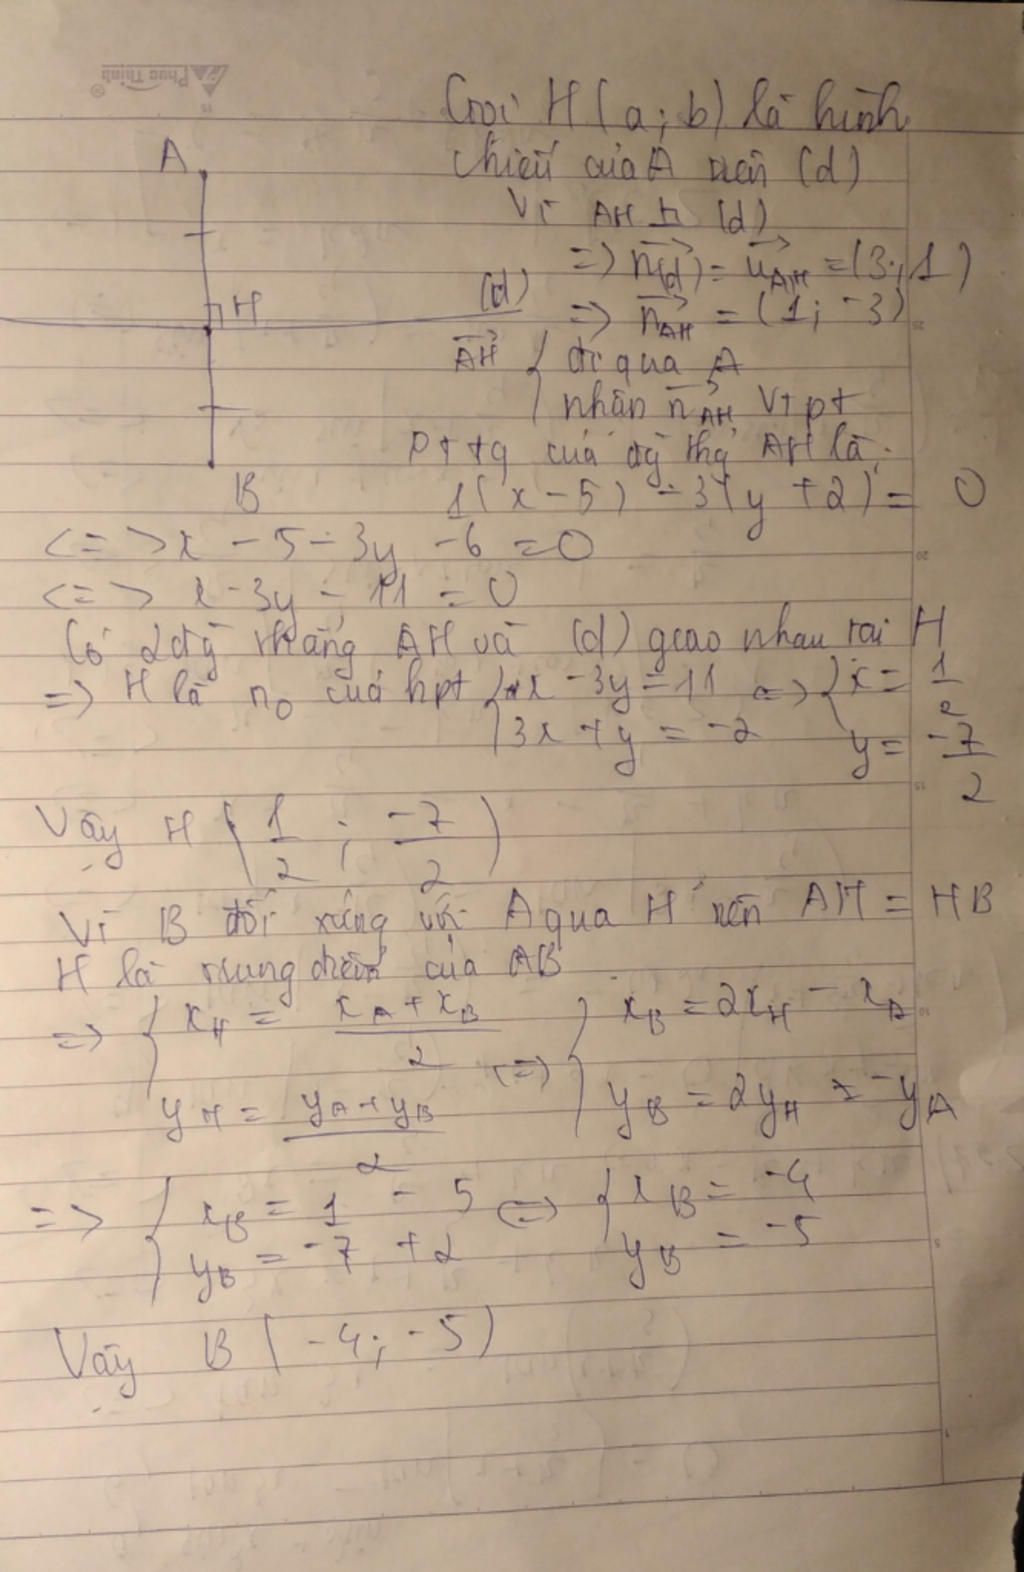 Phuc Thinh
Gọi H(a; b) là hình
chiếu của A trên (d)
A
Vì AH ⊥ (d)
=> n(d) = uAH = (3; 1)
H
(d)
=> nAH = (1; -3)
AH { đi qua A
nhận nAH VTPT
Pt tq của đg thg AH là:
B
1(x - 5) - 3(y + 2) = 0
<=> x - 5 - 3y - 6 = 0
<=> x - 3y - 11 = 0
Có 2 đg thẳng AH và (d) giao nhau tại H
=> H là no của hpt { x - 3y = 11 <=> { x = 1/2
3x + y = -2
y = -7/2
Vậy H (1/2 ; -7/2)
Vì B đối xứng với A qua H nên AH = HB
H là trung điểm của AB
=> { xH = (xA + xB)/2 <=> { xB = 2xH - xA
yH = (yA + yB)/2
yB = 2yH - yA
=> { xB = 1 - 5 <=> { xB = -4
yB = -7 + 2
yB = -5
Vậy B (-4; -5)